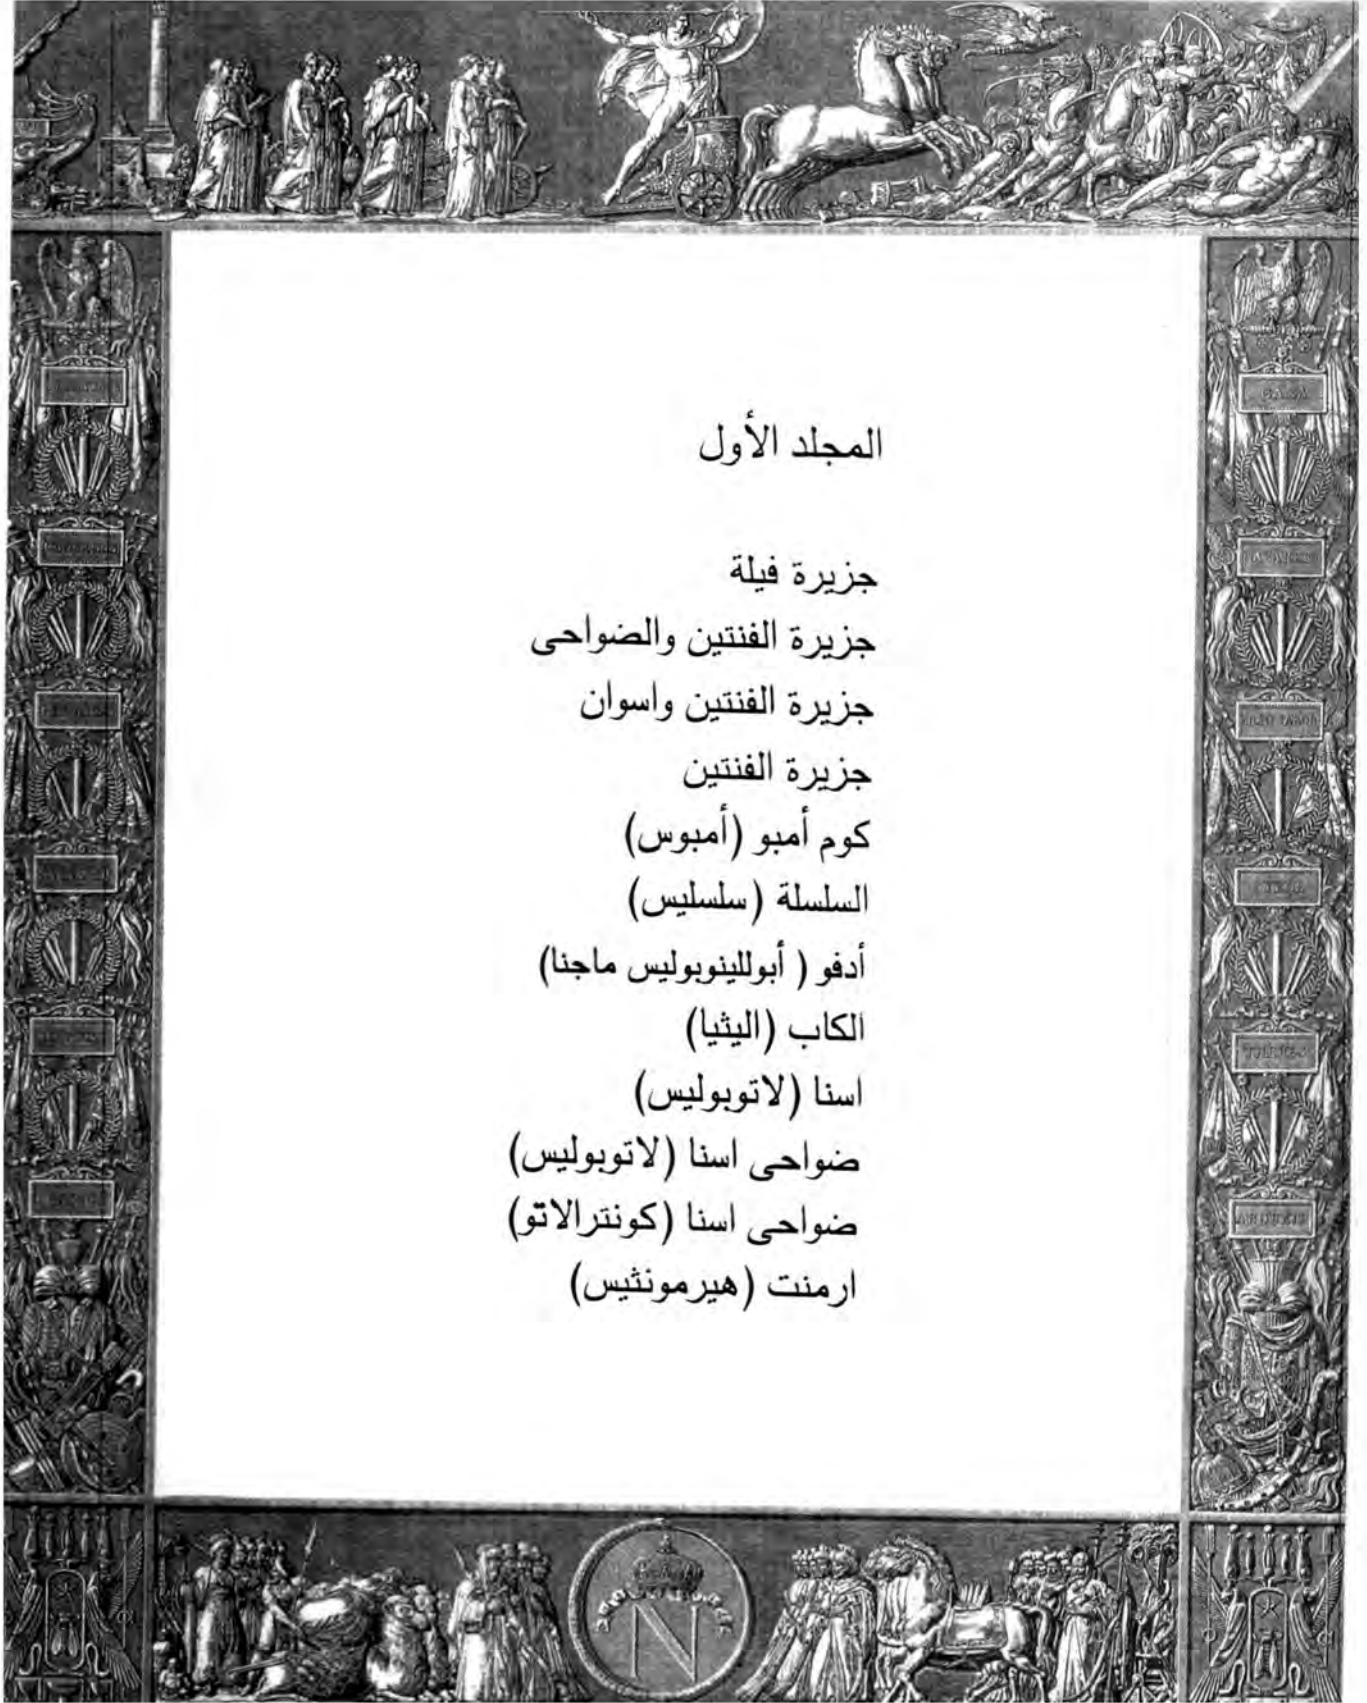 المجلد الأول
جزيرة فيلة
جزيرة الفنتين والضواحى
جزيرة الفنتين واسوان
جزيرة الفنتين
كوم أمبو (أمبوس)
السلسلة (سلسليس)
أدفو ( أبوللينوبوليس ماجنا)
الكاب (اليثيا)
اسنا (لاتوبوليس)
ضواحى اسنا (لاتوبوليس)
ضواحى اسنا (كونترالاتو)
ارمنت (هيرمونثيس)
GAZA
THEBES
N